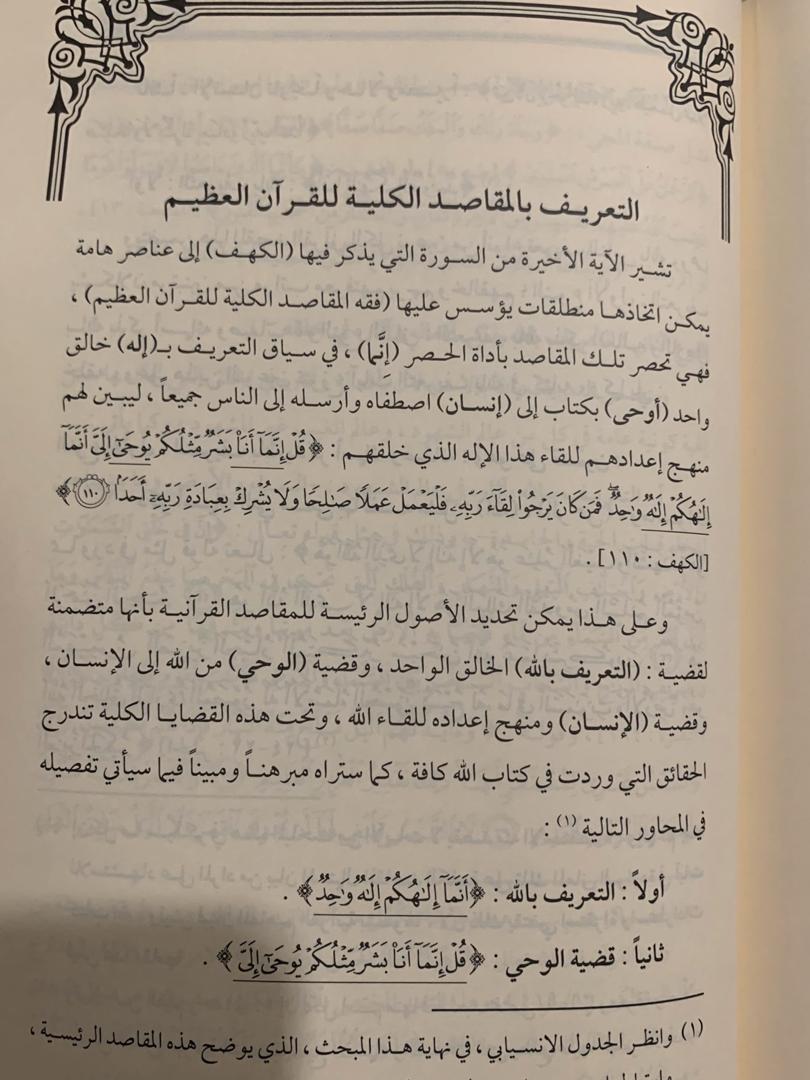 التعريف بالمقاصد الكلية للقرآن العظيم
تشير الآية الأخيرة من السورة التي يذكر فيها (الكهف) إلى عناصر هامة
يمكن اتخاذها منطلقات يؤسس عليها (فقه المقاصد الكلية للقرآن العظيم) ،
فهي تحصر تلك المقاصد بأداة الحصر (إِنَّما) ، في سياق التعريف بـ(إله) خالق
واحد (أوحى) بكتاب إلى (إنسان) اصطفاه وأرسله إلى الناس جميعاً ، ليبين لهم
منهج إعدادهم للقاء هذا الإله الذي خلقهم : ﴿ قُلْ إِنَّمَآ أَنَا۠ بَشَرٌ مِّثْلُكُمْ يُوحَىٰٓ إِلَىَّ أَنَّمَآ
إِلَٰهُكُمْ إِلَٰهٌ وَٰحِدٌ ۖ فَمَن كَانَ يَرْجُوا۟ لِقَآءَ رَبِّهِۦ فَلْيَعْمَلْ عَمَلًا صَٰلِحًا وَلَا يُشْرِكْ بِعِبَادَةِ رَبِّهِۦٓ أَحَدًۢا ۝١١٠ ﴾
[الكهف : ١١٠] .
وعلى هذا يمكن تحديد الأصول الرئيسة للمقاصد القرآنية بأنها متضمنة
لقضية : (التعريف بالله) الخالق الواحد ، وقضية (الوحي) من الله إلى الإنسان ،
وقضية (الإنسان) ومنهج إعداده للقاء الله ، وتحت هذه القضايا الكلية تندرج
الحقائق التي وردت في كتاب الله كافة ، كما ستراه مبرهناً ومبيناً فيما سيأتي تفصيله
في المحاور التالية (١) :
أولاً : التعريف بالله : ﴿ أَنَّمَآ إِلَٰهُكُمْ إِلَٰهٌ وَٰحِدٌ ﴾ .
ثانياً : قضية الوحي : ﴿ قُلْ إِنَّمَآ أَنَا۠ بَشَرٌ مِّثْلُكُمْ يُوحَىٰٓ إِلَىَّ ﴾ .
(١) وانظر الجدول الانسيابي ، في نهاية هذا المبحث ، الذي يوضح هذه المقاصد الرئيسية ،